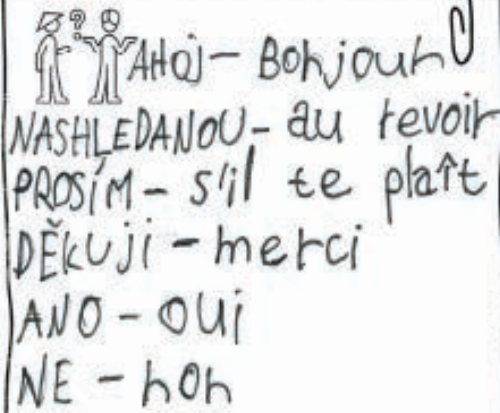 AHOJ – Bonjour
NASHLEDANOU – au revoir
PROSÍM – s'il te plaît
DĚKUJI – merci
ANO – oui
NE – non